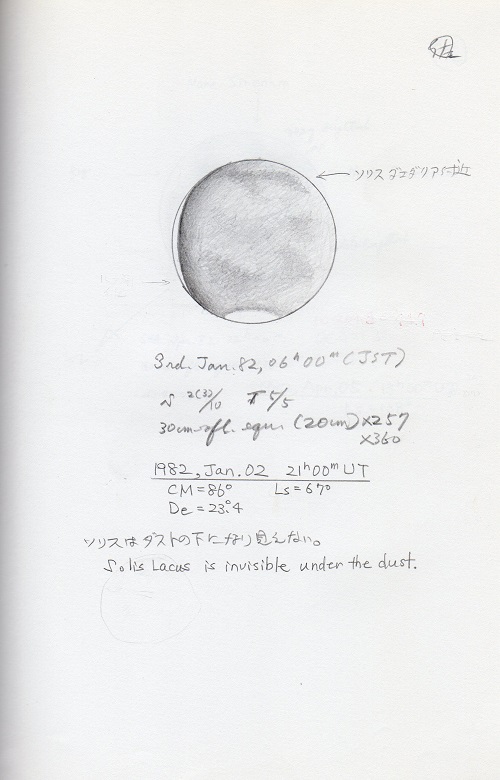 ソリス
3rd. Jan. 82, 06ʰ00ᵐ (JST)
2(3)/10 T 5/5
30cm refl. equi. (20cm) ×257
×360
1982, Jan. 02 21ʰ00ᵐ UT
CM=86° Ls=67°
De=23.°4
ソリスはダストの下になり見えない。
Solis Lacus is invisible under the dust.